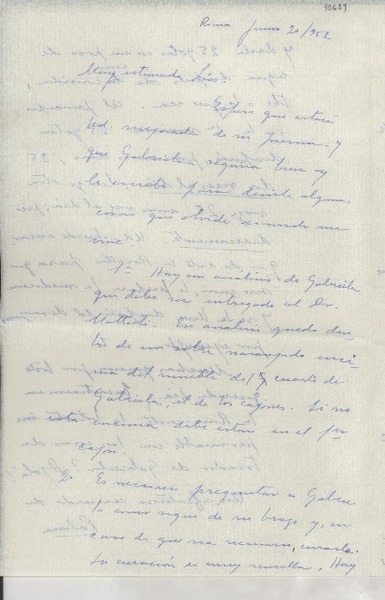 10687
Roma Junio 20/952
Muy estimada
Espero que estará
Ud. mejorada de su pierna y
que Gabriela seguirá bien y
le escribo para decirle algunas
cosas que olvidé cuando me
vine.
1º Hay un análisis de Gabriela
que debe ser entregado al Dr.
Mattioli. Ese análisis quedó den-
tro de un sobre naranjado enci-
ma del mueble del cuarto de
Gabriela, el de los cajones. Si no
está encima debe estar en el 1er
cajón.
2º Es necesario preguntar a Gabrie-
la como sigue de su brazo y, en
caso de que sea necesario, curarla.
La curación es muy sencilla. Hay